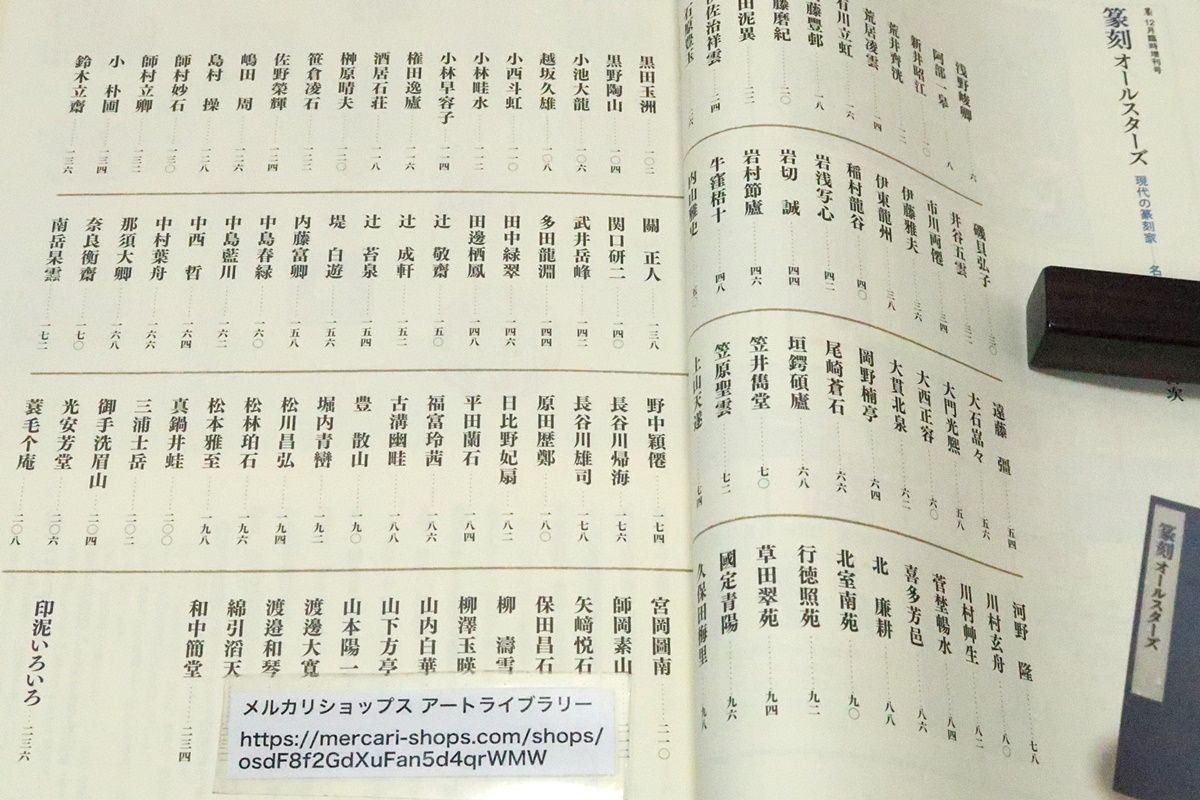 墨 12月臨時増刊号
篆刻 オールスターズ
現代の篆刻家
名
次
篆刻 オールスターズ
浅野峻卿 六
阿部一皐 八
新井昭江 一〇
荒井齊洸 一二
荒居淩雲 一四
石川立虹 一六
藤豐邨 一八
藤磨紀 二〇
田泥異 二二
佐治祥雲 二四
磯貝弘子 三〇
井谷五雲 三二
市川両僊 三四
伊藤雅夫 三六
伊東龍州 三八
稲村龍谷 四〇
岩浅写心 四二
岩切 誠 四四
岩村節廬 四六
牛窪梧十 四八
内山雅史
遠藤 彊 五四
大石嵓々 五六
大門光熈 五八
大西正容 六〇
大貫北泉 六二
岡野楠亭 六四
尾崎蒼石 六六
垣鍔碩廬 六八
笠井雋堂 七〇
笠原聖雲 七二
上山天遂 七四
河野 隆 七八
川村玄舟 八〇
川村艸生 八二
菅埜暢水 八四
喜多芳邑 八六
北 廉耕 八八
北室南苑 九〇
行徳照苑 九二
草田翠苑 九四
國定青陽 九六
久保田梅里 九八
黒田玉洲 一〇二
黒野陶山 一〇四
小池大龍 一〇六
越坂久雄 一〇八
小西斗虹 一一〇
小林畦水 一一二
小林早容子 一一四
権田逸廬 一一六
酒居石荘 一一八
榊原晴夫 一二〇
笹倉凌石 一二二
佐野榮輝 一二四
嶋田 周 一二六
島村 操 一二八
師村妙石 一三〇
師村立卿 一三二
小 朴圃
鈴木立齋 一三六
關 正人 一三八
関口研二 一四〇
武井岳峰 一四二
多田龍淵 一四四
田中緑翠 一四六
田邊栖鳳 一四八
辻 敬齋 一五〇
辻 成軒 一五二
辻 苔泉 一五四
堤 白遊
内藤富卿 一五八
中島春緑 一六〇
中島藍川 一六二
中西 哲 一六四
中村葉舟 一六六
那須大卿 一六八
奈良衡齋 一七〇
南岳杲雲 一七二
野中穎僊 一七四
長谷川帰海 一七六
長谷川雄司 一七八
原田歴鄭 一八〇
日比野妃扇 一八二
平田蘭石 一八四
福富玲茜 一八六
古溝幽畦 一八八
豊 散山 一九〇
堀内青巒 一九二
松川昌弘 一九四
松林珀石 一九六
松本雅至 一九八
真鍋井蛙 二〇〇
三浦士岳 二〇二
御手洗眉山 二〇四
光安芳堂 二〇六
蓑毛个庵 二〇八
宮岡圖南 二一〇
師岡素山
矢﨑悦石
保田昌石
柳 濤雪
柳澤玉暎
山内白華
山下方亭
山本陽一
渡邊大寛
渡邉和琴
綿引滔天
和中簡堂 二三四
印泥いろいろ 二三六
メルカリショップス アートライブラリー
https://mercari-shops.com/shops/
osdF8f2GdXuFan5d4qrWMW